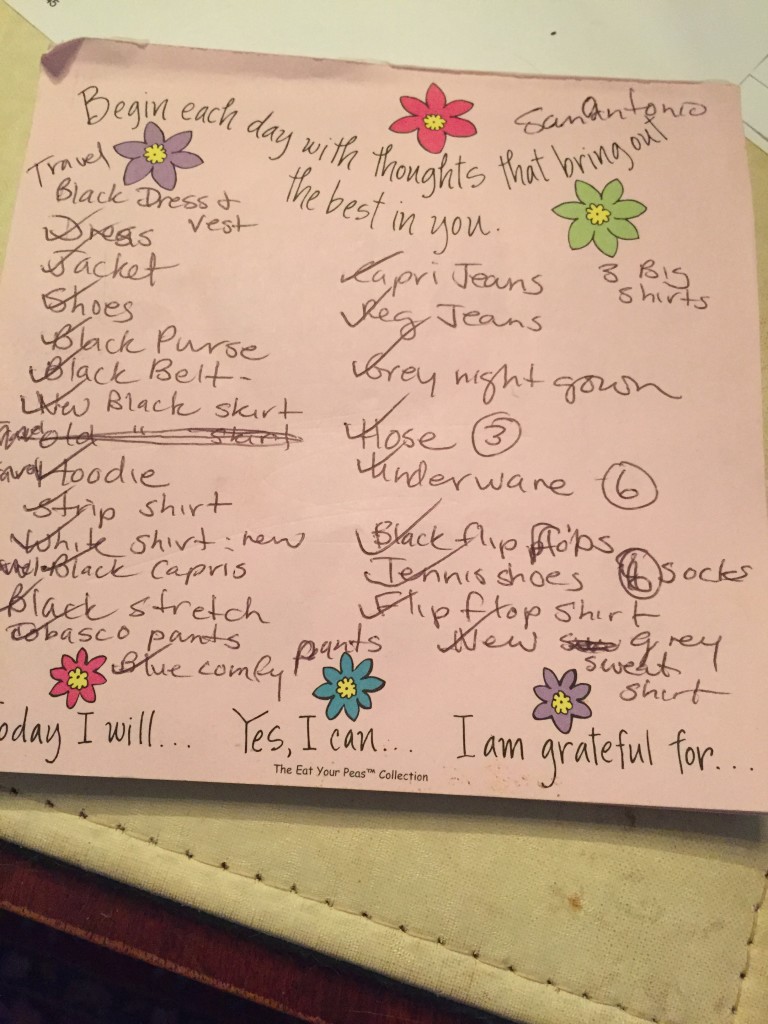 San Antonio
Begin each day with thoughts that bring out
the best in you.
Travel
Black Dress &
vest
Dress
Jacket
Shoes
Black Purse
Black Belt -
New Black skirt
Hoodie
strip shirt
White shirt - new
Black capris
Black stretch
pants
blue comfy pants
3 Big
Shirts
Capri Jeans
Reg Jeans
Grey night gown
Hose 3
Underware 6
Black flip flops
Tennis shoes socks
Flip flop shirt
New grey
sweat
shirt
Today I will... Yes, I can... I am grateful for...
The Eat Your Peas™ Collection